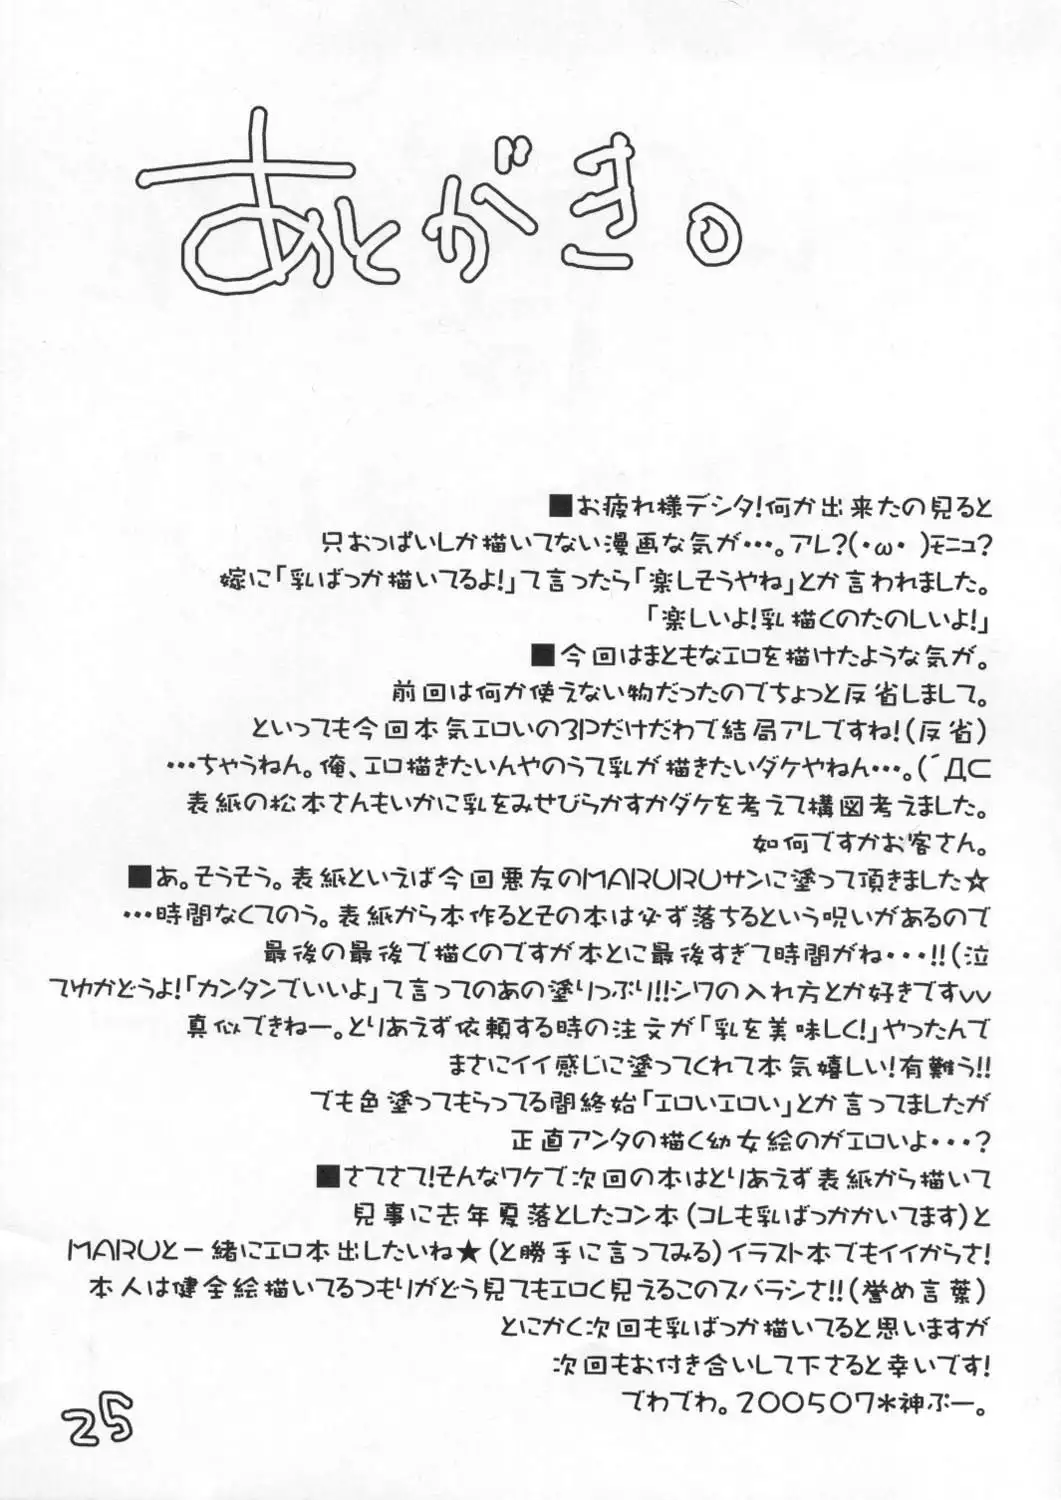 あとがき。
■お疲れ様デシタ!何か出来たの見ると
只おっぱいしか描いてない漫画な気が・・・。アレ?(・ω・ )ﾓﾆｭ?
嫁に「乳ばっか描いてるよ!」て言ったら「楽しそうやね」とか言われました。
「楽しいよ!乳描くのたのしいよ!」
■今回はまともなエロを描けたような気が。
前回は何か使えない物だったのでちょっと反省しまして。
といっても今回本気エロいの3Pだけだわで結局アレですね!(反省)
・・・ちゃうねん。俺、エロ描きたいんやのうて乳が描きたいダケやねん・・・。(´Д⊂
表紙の松本さんもいかに乳をみせびらかすかダケを考えて構図考えました。
如何ですかお客さん。
■あ。そうそう。表紙といえば今回悪友のMARURUサンに塗って頂きました☆
・・・時間なくてのう。表紙から本作るとその本は必ず落ちるという呪いがあるので
最後の最後で描くのですが本とに最後すぎて時間がね・・・!!(泣
てゆかどうよ!「カンタンでいいよ」て言ってのあの塗りっぷり!!シワの入れ方とか好きですvv
真似できねー。とりあえず依頼する時の注文が「乳を美味しく!」やったんで
まさにイイ感じに塗ってくれて本気嬉しい!有難う!!
でも色塗ってもらってる間終始「エロいエロい」とか言ってましたが
正直アンタの描く幼女絵のがエロいよ・・・?
■さてさて!そんなワケで次回の本はとりあえず表紙から描いて
見事に去年夏落としたコン本(コレも乳ばっかかいてます)と
MARUと一緒にエロ本出したいね★(と勝手に言ってみる)イラスト本でもイイからさ!
本人は健全絵描いてるつもりがどう見てもエロく見えるこのスバラシさ!!(誉め言葉)
とにかく次回も乳ばっか描いてると思いますが
次回もお付き合いして下さると幸いです!
でわでわ。200507*神ぶー。
25